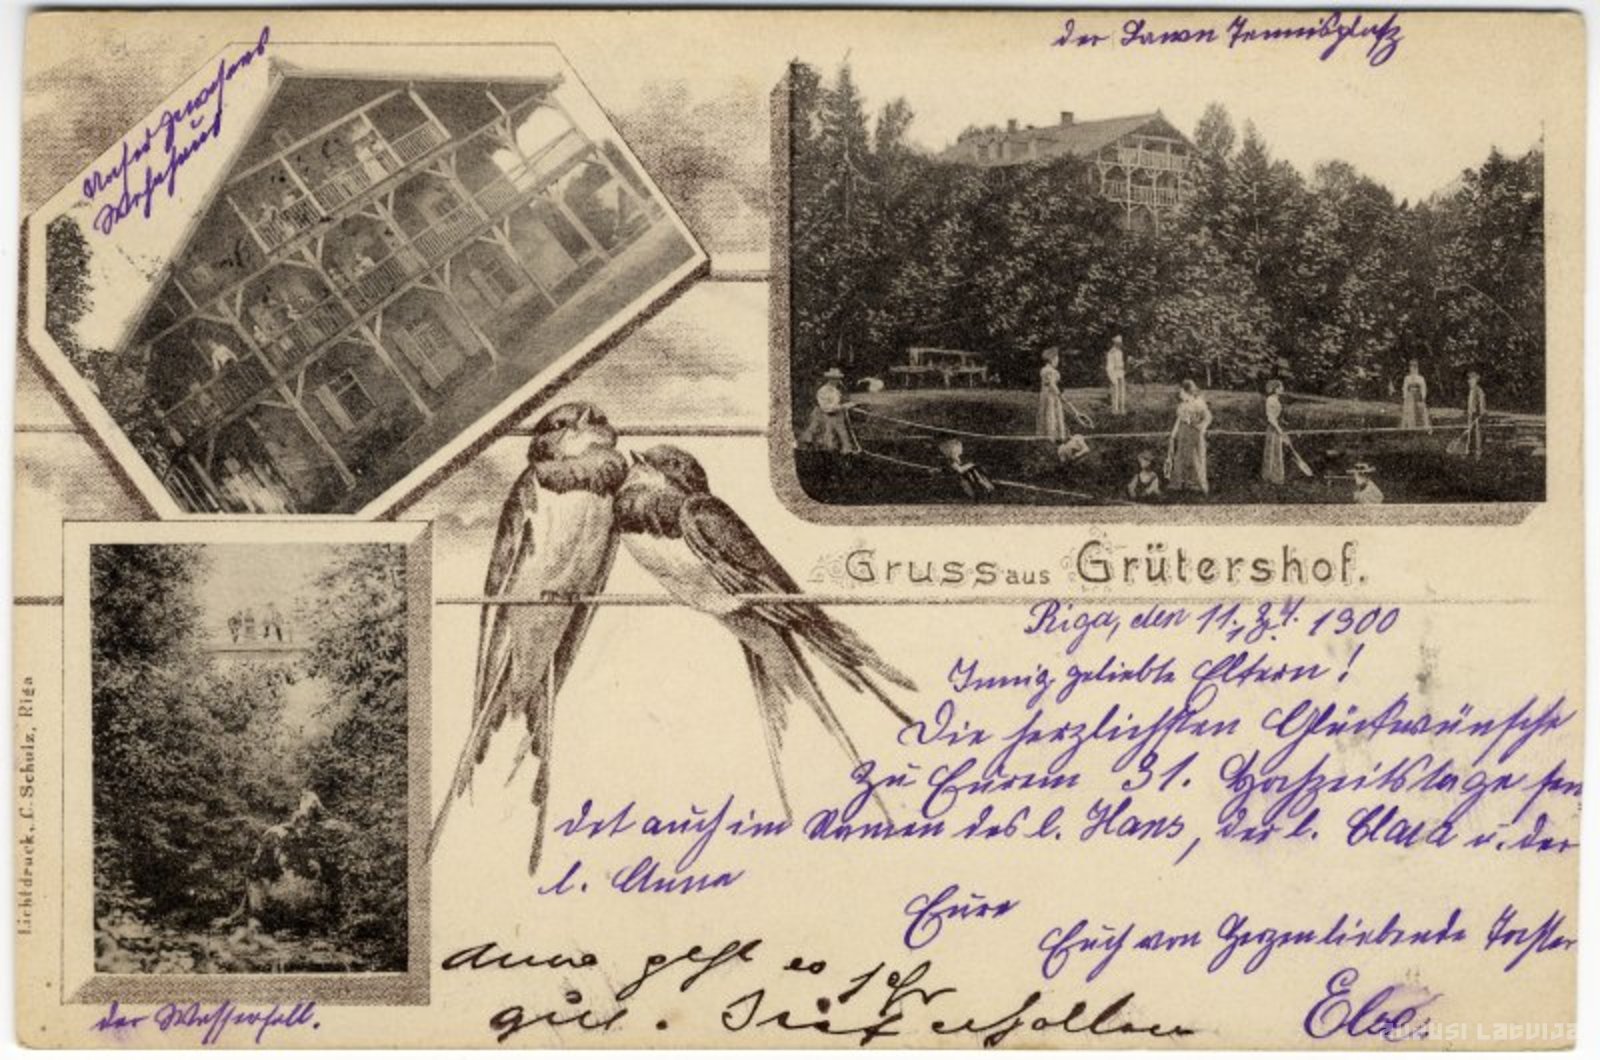 der Lawn Tennisplatz
Unser gewesenes
Wohnhaus
Gruss aus Grütershof.
Riga, den 11. 1900
Innig geliebte Eltern!
Die herzlichsten Glückwünsche
zu Eurem 31. Hochzeitstage sen
det auch im Namen des l. Hans, der l. Clara u. der
l. Anna
Eure
Euch von Herzen liebende Tochter
Anna geht es sehr
gut.
der Wasserfall.
Lichtdruck, C. Schulz, Riga
ZUDUSI LATVIJA